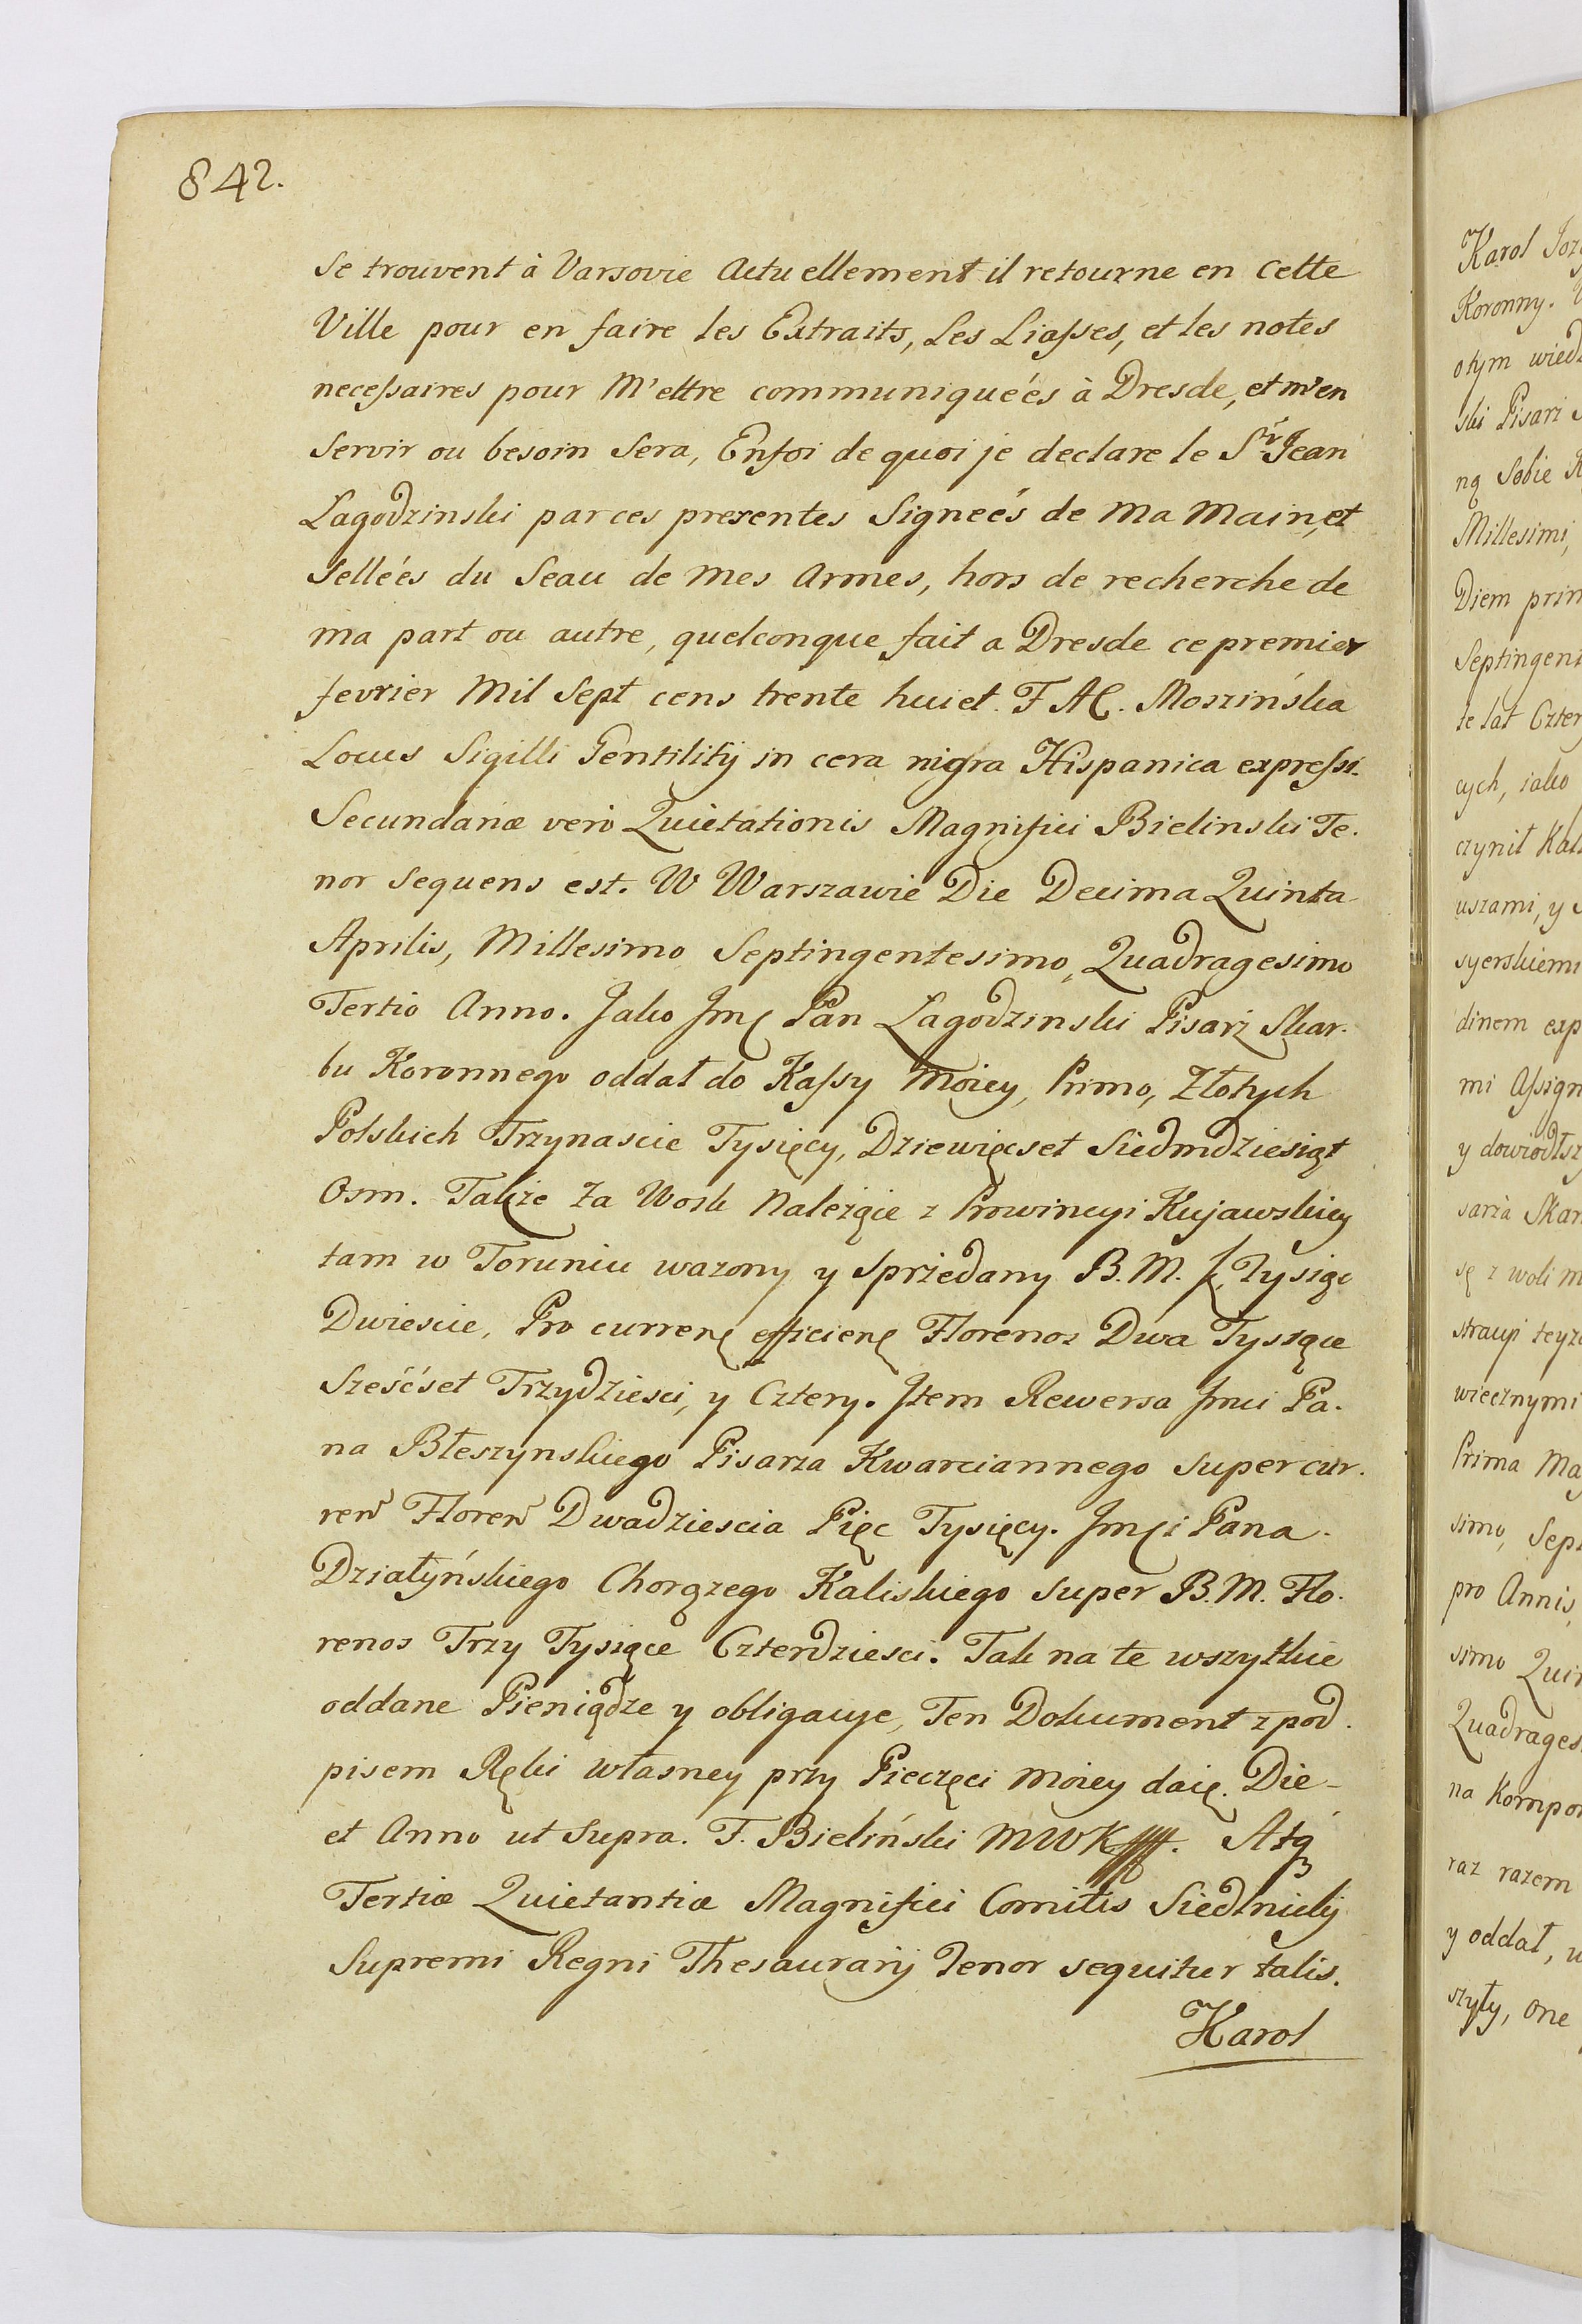 842.
se trouvent à Varsovie Actuellement il retourne en Cette
Ville pour en faire les Extraits, Les Liaſses, et les notes
neceſsaires pour M'ettre communiqueés à Dresde, et m'en
servir ou besoin Sera, Enfoi de quoi je declare le Sr Jean
Lagodzinski par ces presentes Signeés de Ma Main, et
Selleés du Seau de Mes Armes, hors de recherche de
ma part ou autre, quelconque fait a Dresde ce premier
fevrier Mil Sept cens trente huiet. F. A C. Moszińska
Locus Sigilli Gentilitij in cera nigra Hispanica expreſsi.
Secundariæ verò Quietationis Magnifici Bielinski Te.
nor sequens est. W Warszawie Die Decima Quinta
Aprilis, Millesimo Septingentesimo, Quadragesimo
Tertio Anno. Jako Jmć Pan Lagodzinski Pisarż Skar.
bu Koronnego oddał do Kaſsy Moiey, Primo, Złotych
Polskich Trzynascie Tysięcy, Dziewięcset Siedmdziesiąt
Osm. Także Za Wosk Należące z Prowincyi Kujawskiey
tam w Toruniu ważony y Sprżedany B. M. f. Tysiąc
Dwiescie, Pro curren efficien Florenos Dwa Tysiące
Sześćset Trzydziesci, y Cztery. Jtem Rewersa Jmci Pa.
na Błeszynskiego Pisarza Kwarciannego super cur.
ren Floren Dwadziescia Pięc Tysięcy. Jmci Pana.
Działyńskiego Chorązego Kaliskiego super B. M. Flo.
renos Trzy Tysiące Czterdziesci. Tak na te wszytkie
oddane Pieniądze y obligacye, Ten Dokument z pod.
pisem Ręki własney przy Pieczęci Moiey daię. Die
et Anno ut Supra. F. Bieliński MWK. Atq
Tertiæ Quietantiæ Magnifici Comitis Siedlnicky
Supremi Regni Thesaurarij Tenor sequitur talis.
Karol
Karol
Koronny.
otym
ski Pisarz
ną Sobie
Millesimi,
Diem
te lat
cych, iako
czynił
uszami, y
dinem
mi
se z woli
wiecznymi
Prima
simo,
pro Annis,
simo
na
raz razem
y oddał,
one